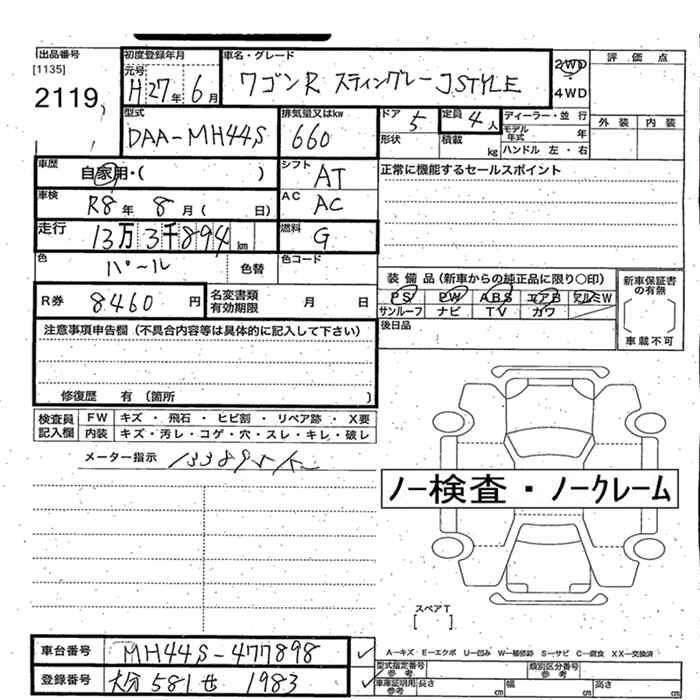 出品番号 初度登録年月 車名・グレード 評価点
[1135] 元号
2119 H27年6月 ワゴンR スティングレー J STYLE 2WD
4WD
型式 排気量又はkw ドア 定員 ディーラー・並行 外装 内装
DAA-MH44S 660 5 4人 モデル年式 年
形状 積載 kg ハンドル 左・右
車歴 シフト 正常に機能するセールスポイント
自家用・( ) AT
車検 AC
R8年 8月( 日) AC
走行 燃料
13万3千894km G
色 パール 色替 色コード
装備品(新車からの純正品に限り○印) 新車保証書の有無
R券 8460円 名変書類有効期限 月 日 PS PW ABS エアB アルミW
サンルーフ ナビ TV カワ
注意事項申告欄(不具合内容等は具体的に記入して下さい) 後日品 車載 不可
修復歴 有(箇所 )
検査員記入欄 FW キズ・飛石・ヒビ割・リペア跡・X要
内装 キズ・汚レ・コゲ・穴・スレ・キレ・破レ
メーター指示 133895km
ノー検査・ノークレーム
スペアT
[ ]
車台番号 MH44S-477898 A-キズ E-エクボ U-凹み W-補修跡 S-サビ C-腐食 XX-交換済
型式指定番号 参考 類別区分番号 参考
登録番号 大分 581 せ 1983 車庫証明用 参考 長さ cm 幅 cm 高さ cm